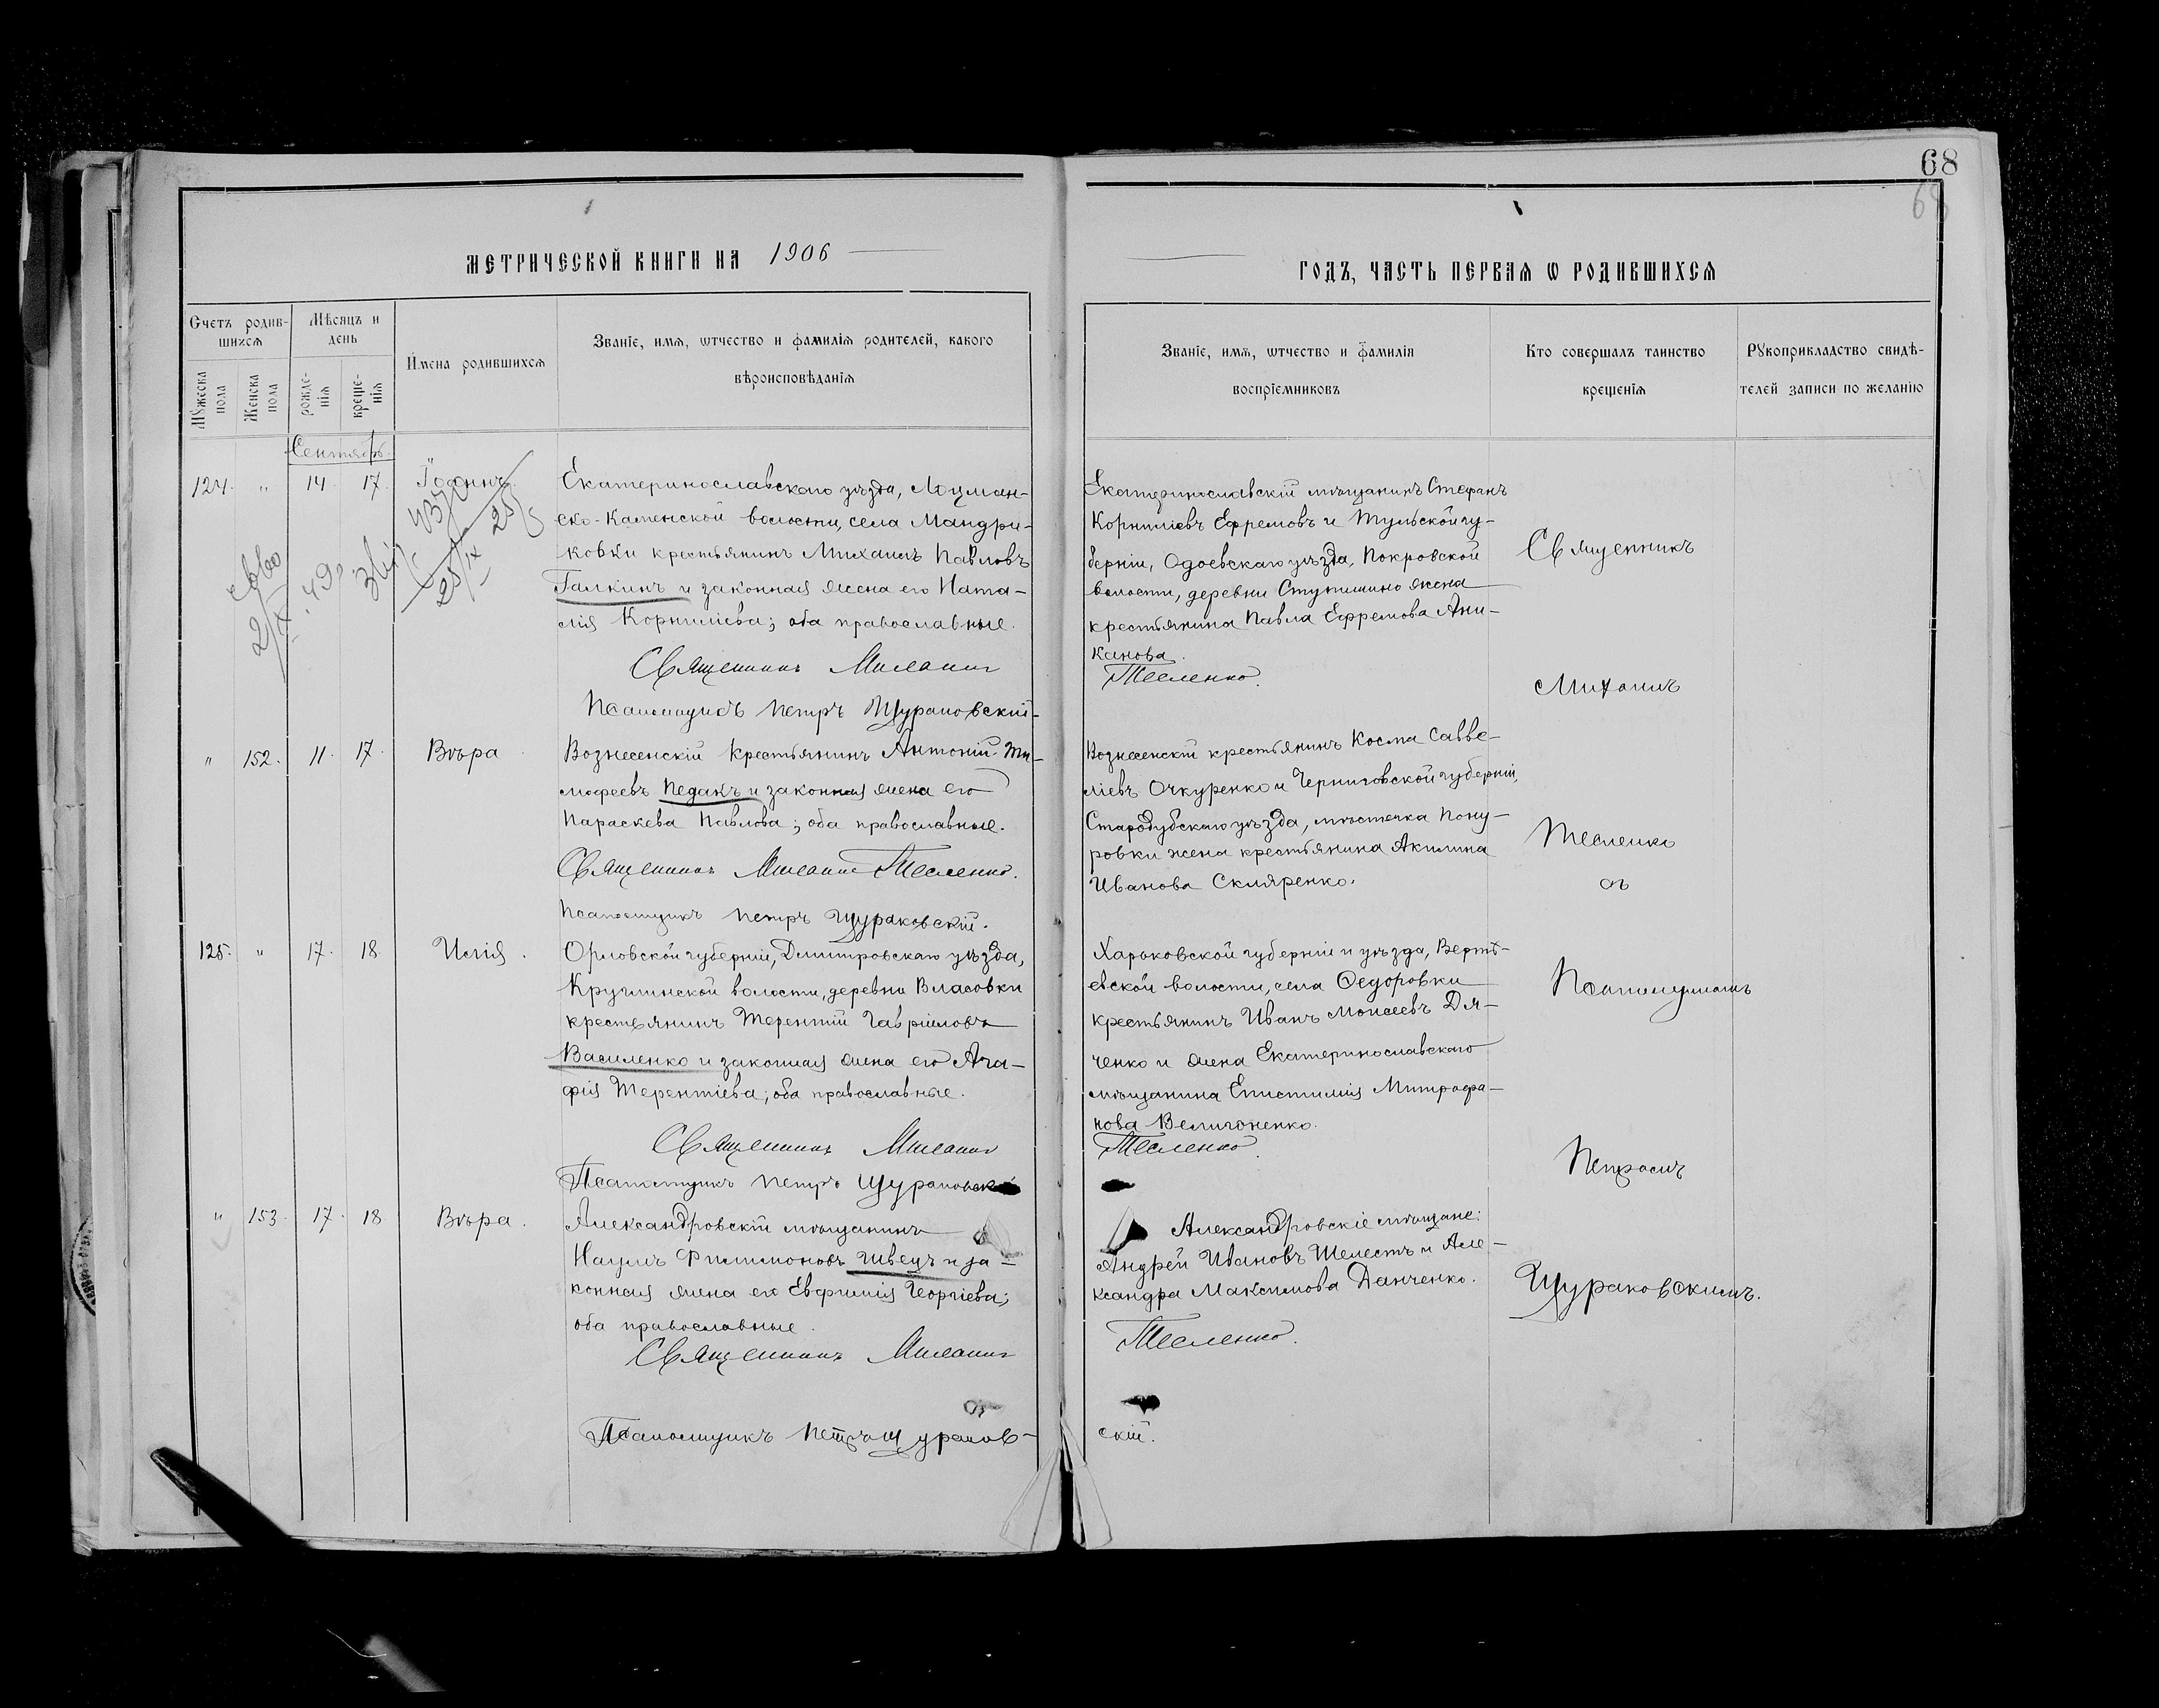 68
68
МЕТРИЧЕСКОЙ КНИГИ НА 1906
ГОДЪ, ЧАСТЬ ПЕРВАѦ Ѡ РОДИВШИХСѦ
Счетъ родив-
шихсѧ
Мѣсяцъ и
день
Мꙋжеска
пола
Женска
пола
рожде-
нія
креще-
нія
Имена родившихсѧ
Званіе, имѧ, ѡтчество и фамиліѧ родителей, какого
вѣроисповѣданіѧ
Званіе, имѧ, ѡтчество и фамиліѧ
воспріемниковъ
Кто совершалъ таинство
крещеніѧ
Рꙋкоприкладство свидѣ-
телей записи по желанію
Сентябрь
124. " 14 17. Іоаннъ.
Екатеринославскаго уѣзда, Лоцман-
ско-Каменской волости, села Мандри-
ковки крестьянинъ Михаилъ Павловъ
Галкинъ и законная жена его Ната-
лія Корниліева; оба православные.
Священникъ Михаилъ
Псаломщикъ Петръ Щураковскій
Екатеринославскій мѣщанинъ Стефанъ
Корниліевъ Ефремовъ и Тульской гу-
берніи, Одоевскаго уѣзда, Покровской
волости, деревни Ступишино жена
крестьянина Павла Ефремова Ани-
канова.
Тесленко.
" 152. 11. 17. Вѣра
Вознесенскій крестьянинъ Антоній Ти-
мофеевъ Педакъ и законная жена его
Параскева Павлова; оба православные.
Священникъ Михаилъ Тесленко.
Псаломщикъ Петръ Щураковскій.
Вознесенскій крестьянинъ Косма Савве-
ліевъ Очкуренко и Черниговской губерніи,
Стародубскаго уѣзда, мѣстечка Пону-
ровки жена крестьянина Акилина
Иванова Скляренко.
125. " 17. 18. Илія.
Орловской губерніи, Дмитровскаго уѣзда,
Круглинской волости, деревни Власовки
крестьянинъ Терентій Гавріиловъ
Василенко и законная жена его Ага-
фія Терентіева; оба православные.
Священникъ Михаилъ
Псаломщикъ Петръ Щураковскій
Харьковской губерніи и уѣзда, Вертѣ-
евской волости, села Ѳедоровки
крестьянинъ Иванъ Моисеевъ Дя-
ченко и жена Екатеринославскаго
мѣщанина Епистимія Митрофа-
нова Величоненко.
Тесленко.
" 153. 17. 18 Вѣра.
Александровскій мѣщанинъ
Наумъ Филимоновъ Швецъ и за-
конная жена его Евфимія Георгіева;
оба православные.
Священникъ Михаилъ
Псаломщикъ Петръ Щураков-
Александровскіе мѣщане:
Андрей Ивановъ Шелестъ и Але-
ксандра Максимова Данченко.
Тесленко.
скій.
Священникъ
Михаилъ
Тесленко
съ
Псаломщикомъ
Петромъ
Щураковскимъ.